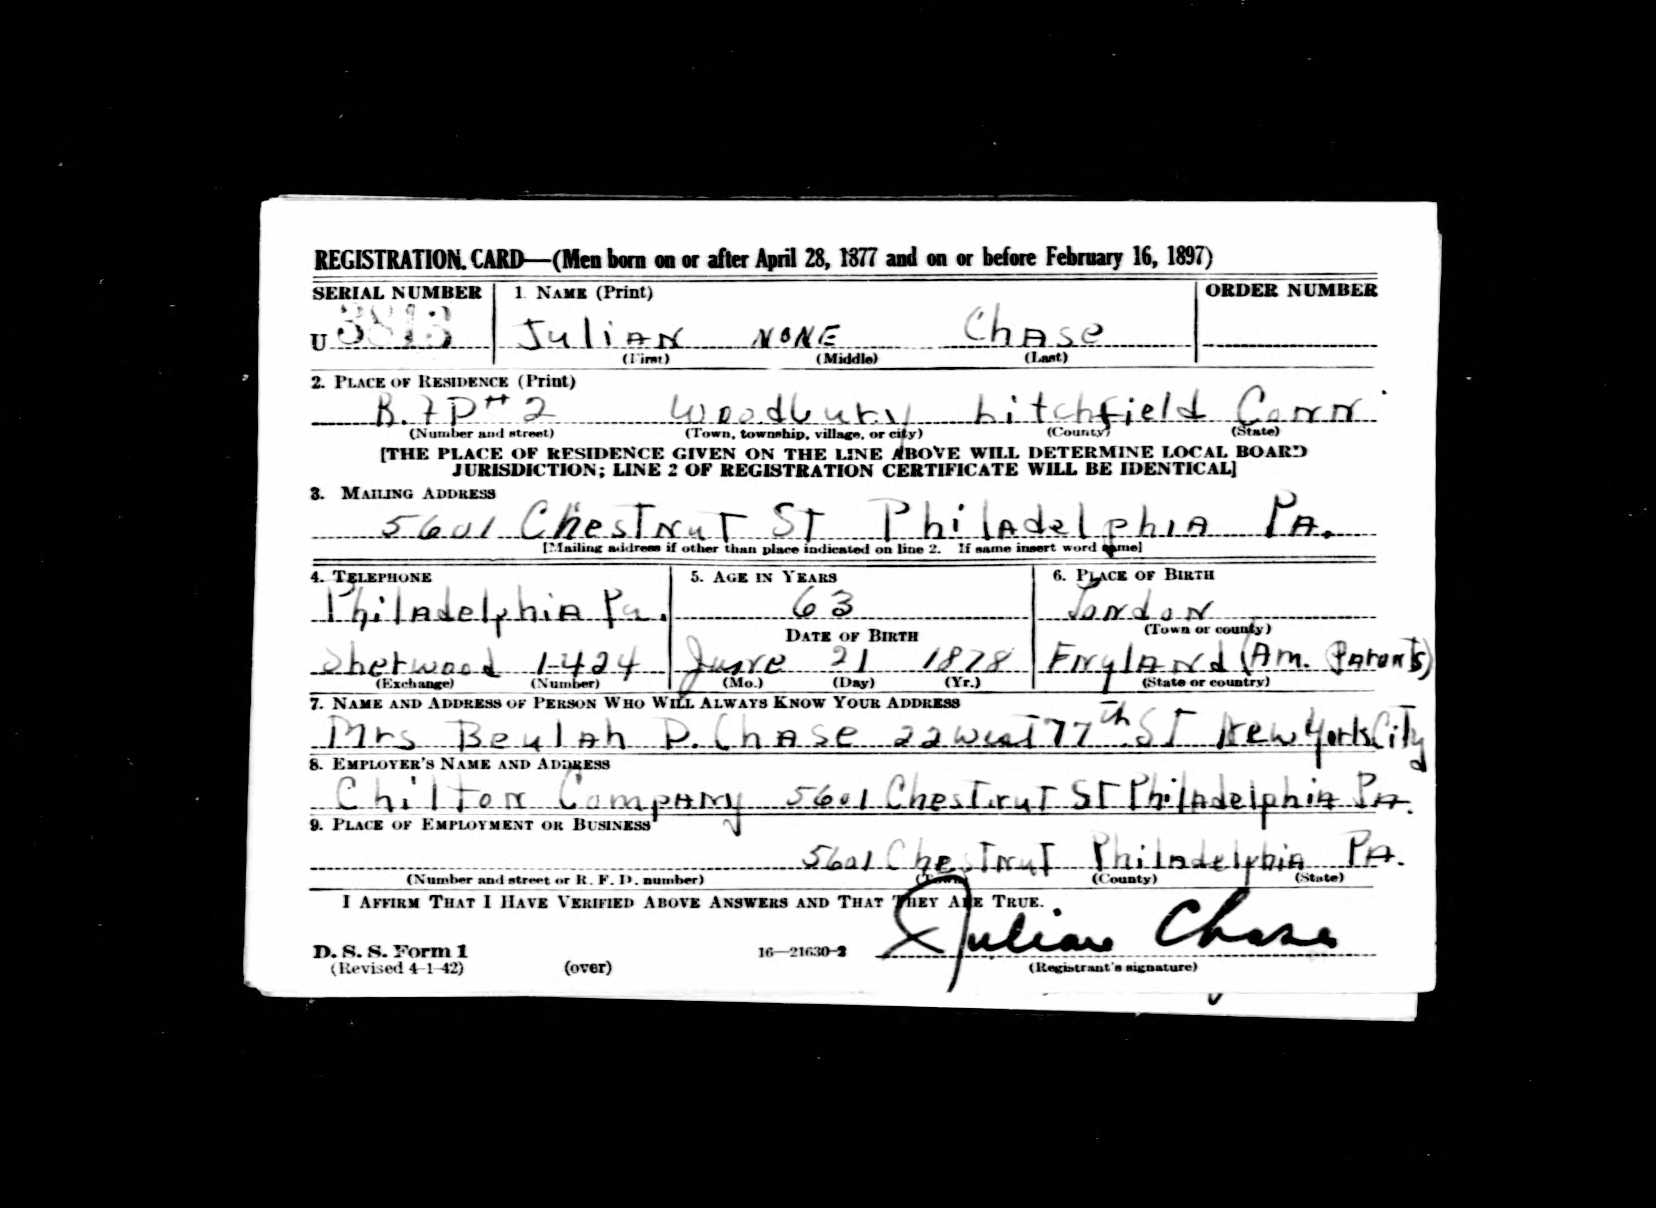 REGISTRATION CARD—(Men born on or after April 28, 1877 and on or before February 16, 1897)
SERIAL NUMBER 1. NAME (Print) ORDER NUMBER
U Julian NONE Chase
(First) (Middle) (Last)
2. PLACE OF RESIDENCE (Print)
R.F.D #2 Woodbury Litchfield Conn
(Number and street) (Town, township, village, or city) (County) (State)
[THE PLACE OF RESIDENCE GIVEN ON THE LINE ABOVE WILL DETERMINE LOCAL BOARD
JURISDICTION; LINE 2 OF REGISTRATION CERTIFICATE WILL BE IDENTICAL]
3. MAILING ADDRESS
5601 Chestnut St Philadelphia Pa.
[Mailing address if other than place indicated on line 2. If same insert word same]
4. TELEPHONE 5. AGE IN YEARS 6. PLACE OF BIRTH
Philadelphia Pa. 63 London
DATE OF BIRTH (Town or county)
Sherwood 1424 June 21 1878 England (Am. Parents)
(Exchange) (Number) (Mo.) (Day) (Yr.) (State or country)
7. NAME AND ADDRESS OF PERSON WHO WILL ALWAYS KNOW YOUR ADDRESS
Mrs Beulah D. Chase 22 West 77th St New York City
8. EMPLOYER'S NAME AND ADDRESS
Chilton Company 5601 Chestnut St Philadelphia Pa.
9. PLACE OF EMPLOYMENT OR BUSINESS
5601 Chestnut Philadelphia Pa.
(Number and street or R. F. D. number) (Town) (County) (State)
I AFFIRM THAT I HAVE VERIFIED ABOVE ANSWERS AND THAT THEY ARE TRUE.
Julian Chase
D. S. S. Form 1 16—21630-2
(Revised 4-1-42) (over) (Registrant's signature)